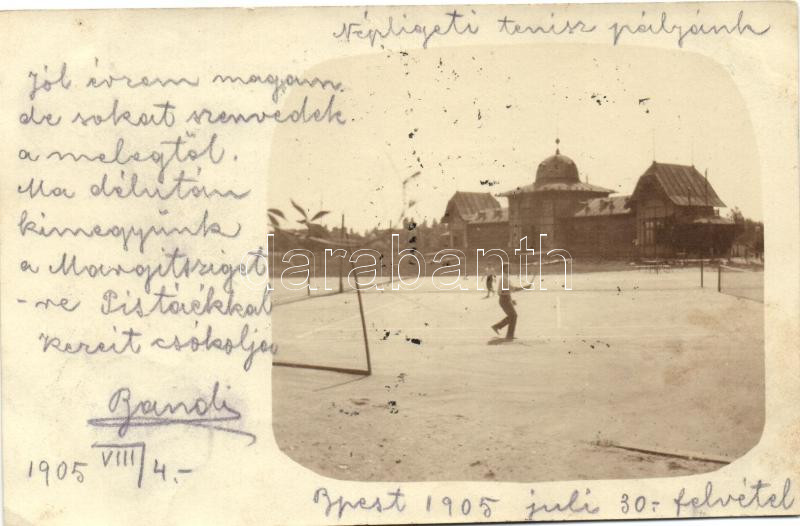 Népligeti tenisz pályánk
Jól érzem magam
de sokat szenvedek
a melegtől.
Ma délután
kimegyünk
a Margitsziget
-re Pistáékkal
Kezeit csókolja
Bandi
1905 VIII/4.-
Bpest 1905 juli 30.- felvétel
darabanth